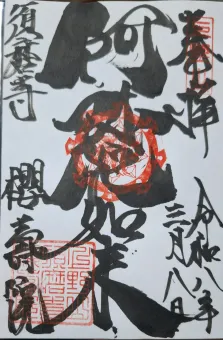 奉拝
令和八年
三月八日
阿閦如来
須磨寺
櫻壽院